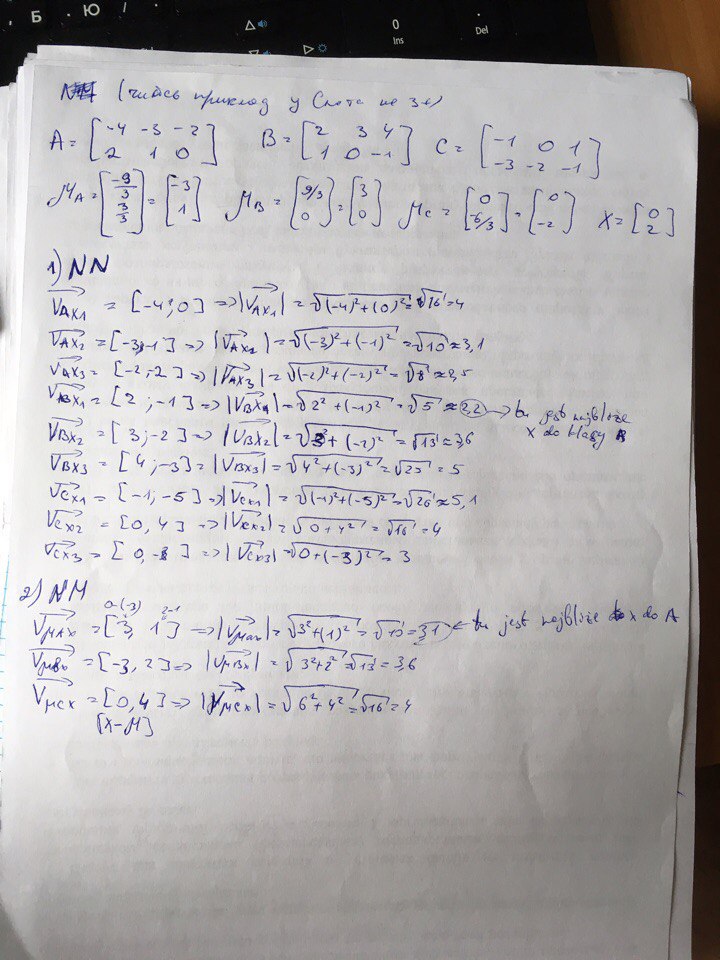 Б Ю / .
0
Ins
Del
(читась приклад у
A = [-4 -3 -2; 2 1 0] B = [2 3 4; 1 0 -1] C = [-1 0 1; -3 -2 -1]
μA = [-9/3; 3/3] = [-3; 1] μB = [9/3; 0] = [3; 0] μC = [0; -6/3] = [0; -2] X = [0; 2]
1) NN
VAX1 = [-4; 0] => |VAX1| = √(-4)²+(0)² = √16 = 4
VAX2 = [-3; -1] => |VAX2| = √(-3)²+(-1)² = √10 ≈ 3,1
VAX3 = [-2; -2] => |VAX3| = √(-2)²+(-2)² = √8 ≈ 2,5
VBX1 = [2; -1] => |VBX1| = √2²+(-1)² = √5 ≈ 2,2 → tu jest najbliże
x do klasy B
VBX2 = [3; -2] => |VBX2| = √3²+(-2)² = √13 ≈ 3,6
VBX3 = [4; -3] = |VBX3| = √4²+(-3)² = √25 = 5
VCX1 = [-1, -5] => |VCX1| = √(-1)²+(-5)² = √26 ≈ 5,1
VCX2 = [0, 4] => |VCX2| = √0+4² = √16 = 4
VCX3 = [0, -3] => |VCX3| = √0+(-3)² = 3
2) NM
0-(-3) 2-1
VμAX = [3, 1] => |VμAX| = √3²+(1)² = √10 = 3,1 ← tu jest najbliże x do A
VμBX = [-3, 2] => |VμBX| = √3²+2² = √13 = 3,6
VμCX = [0, 4] => |VμCX| = √6²+4² = √16 = 4
[X-M]